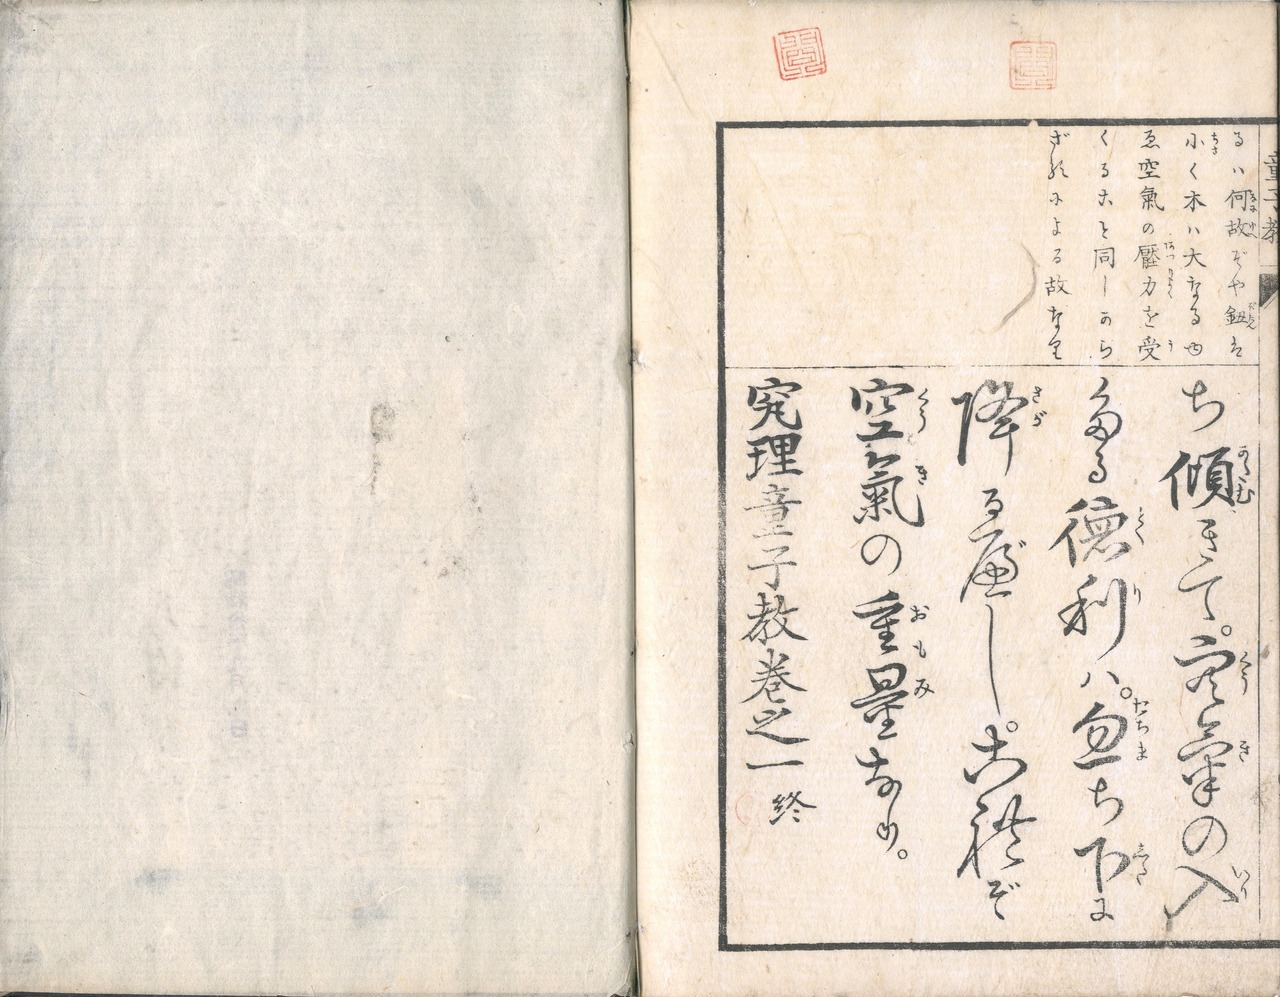 童子教
るハ何故ぞや鈕は
小く木ハ大なるゆ
ゑ空氣の壓力を受
くること同しから
ざるによる故なり
ち傾きて。空氣の入
たる徳利ハ。忽ち下に
降るべし。これぞ
空氣の重量なり。
究理童子教巻之一終